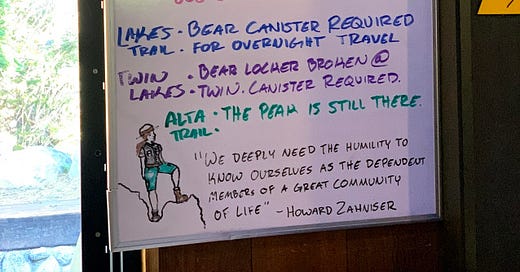 LAKES · BEAR CANISTER REQUIRED
TRAIL · FOR OVERNIGHT TRAVEL
TWIN · BEAR LOCKER BROKEN @
LAKES · TWIN. CANISTER REQUIRED.
ALTA · THE PEAK IS STILL THERE.
TRAIL·
"WE DEEPLY NEED THE HUMILITY TO
KNOW OURSELVES AS THE DEPENDENT
MEMBERS OF A GREAT COMMUNITY
OF LIFE" - HOWARD ZAHNISER